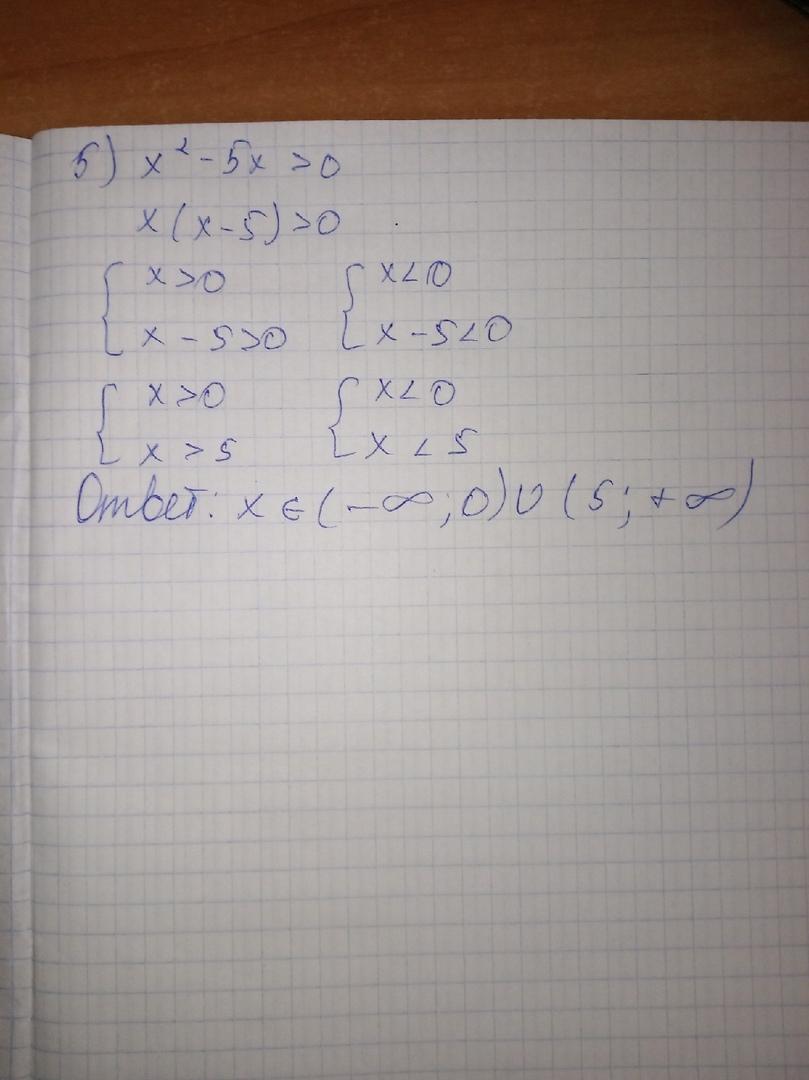 5) x² - 5x > 0
x(x-5)>0
{ x>0 { x<0
{ x - 5>0 { x-5<0
{ x>0 { x<0
{ x > 5 { x < 5
Ответ: x ∈ (-∞; 0) ∪ (5; +∞)